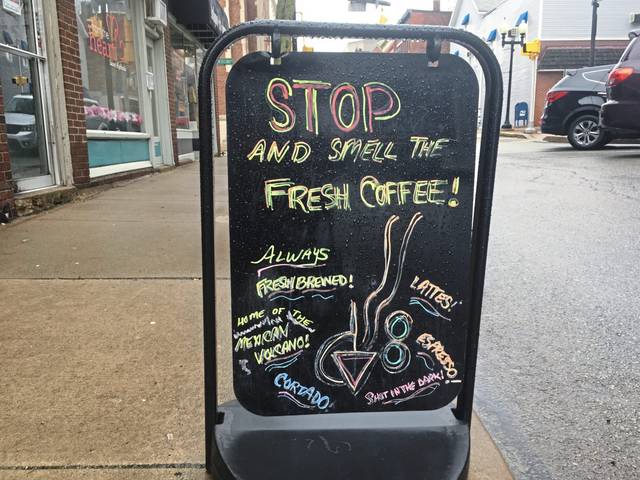 STOP
AND SMELL THE
FRESH COFFEE!
ALWAYS
FRESH BREWED!
HOME OF THE
MEXICAN
VOLCANO!
CORTADO
LATTES!
ESPRESSO!
SHOT IN THE DARK!